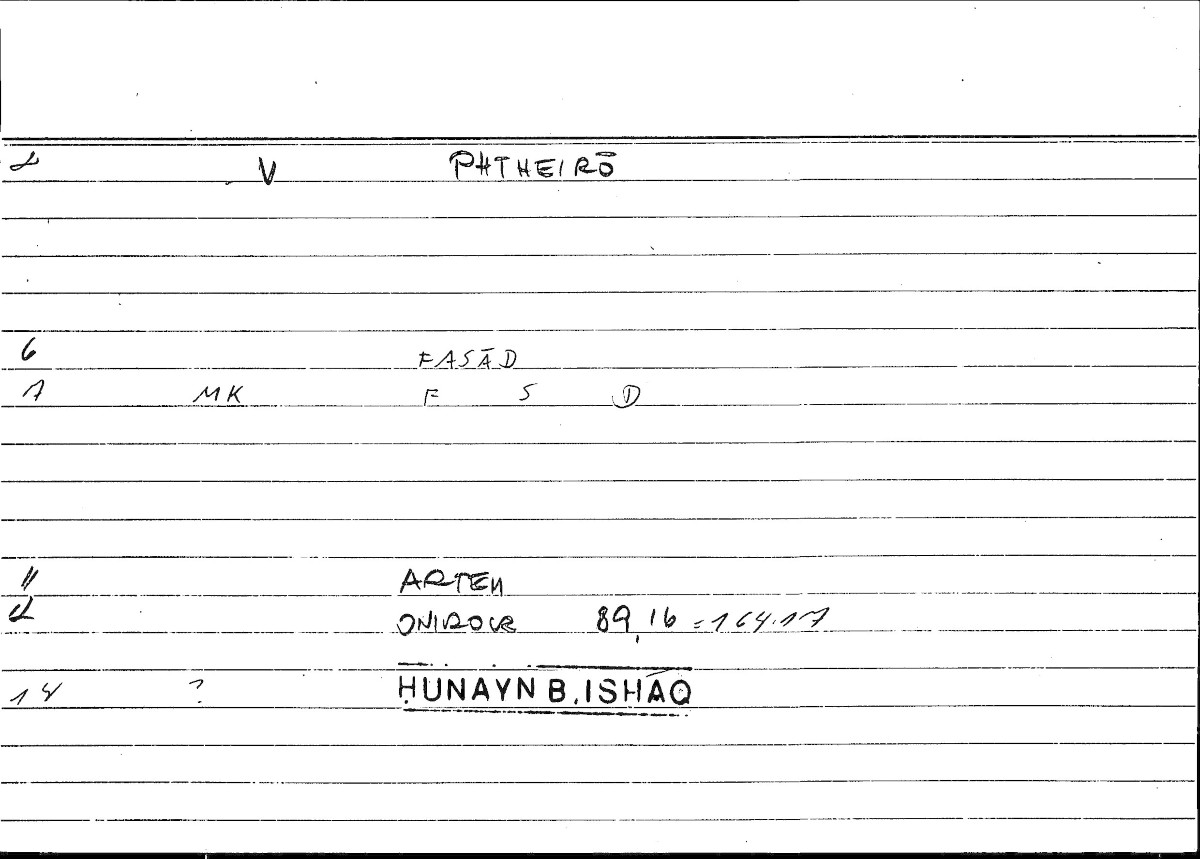 2 V PHTHEIRŌ
6 FASĀD
7 MK F S D
11 ARTEM
12 ONIROCR 89,16 = 164.17
14 ? ḤUNAYN B. ISḤĀQ